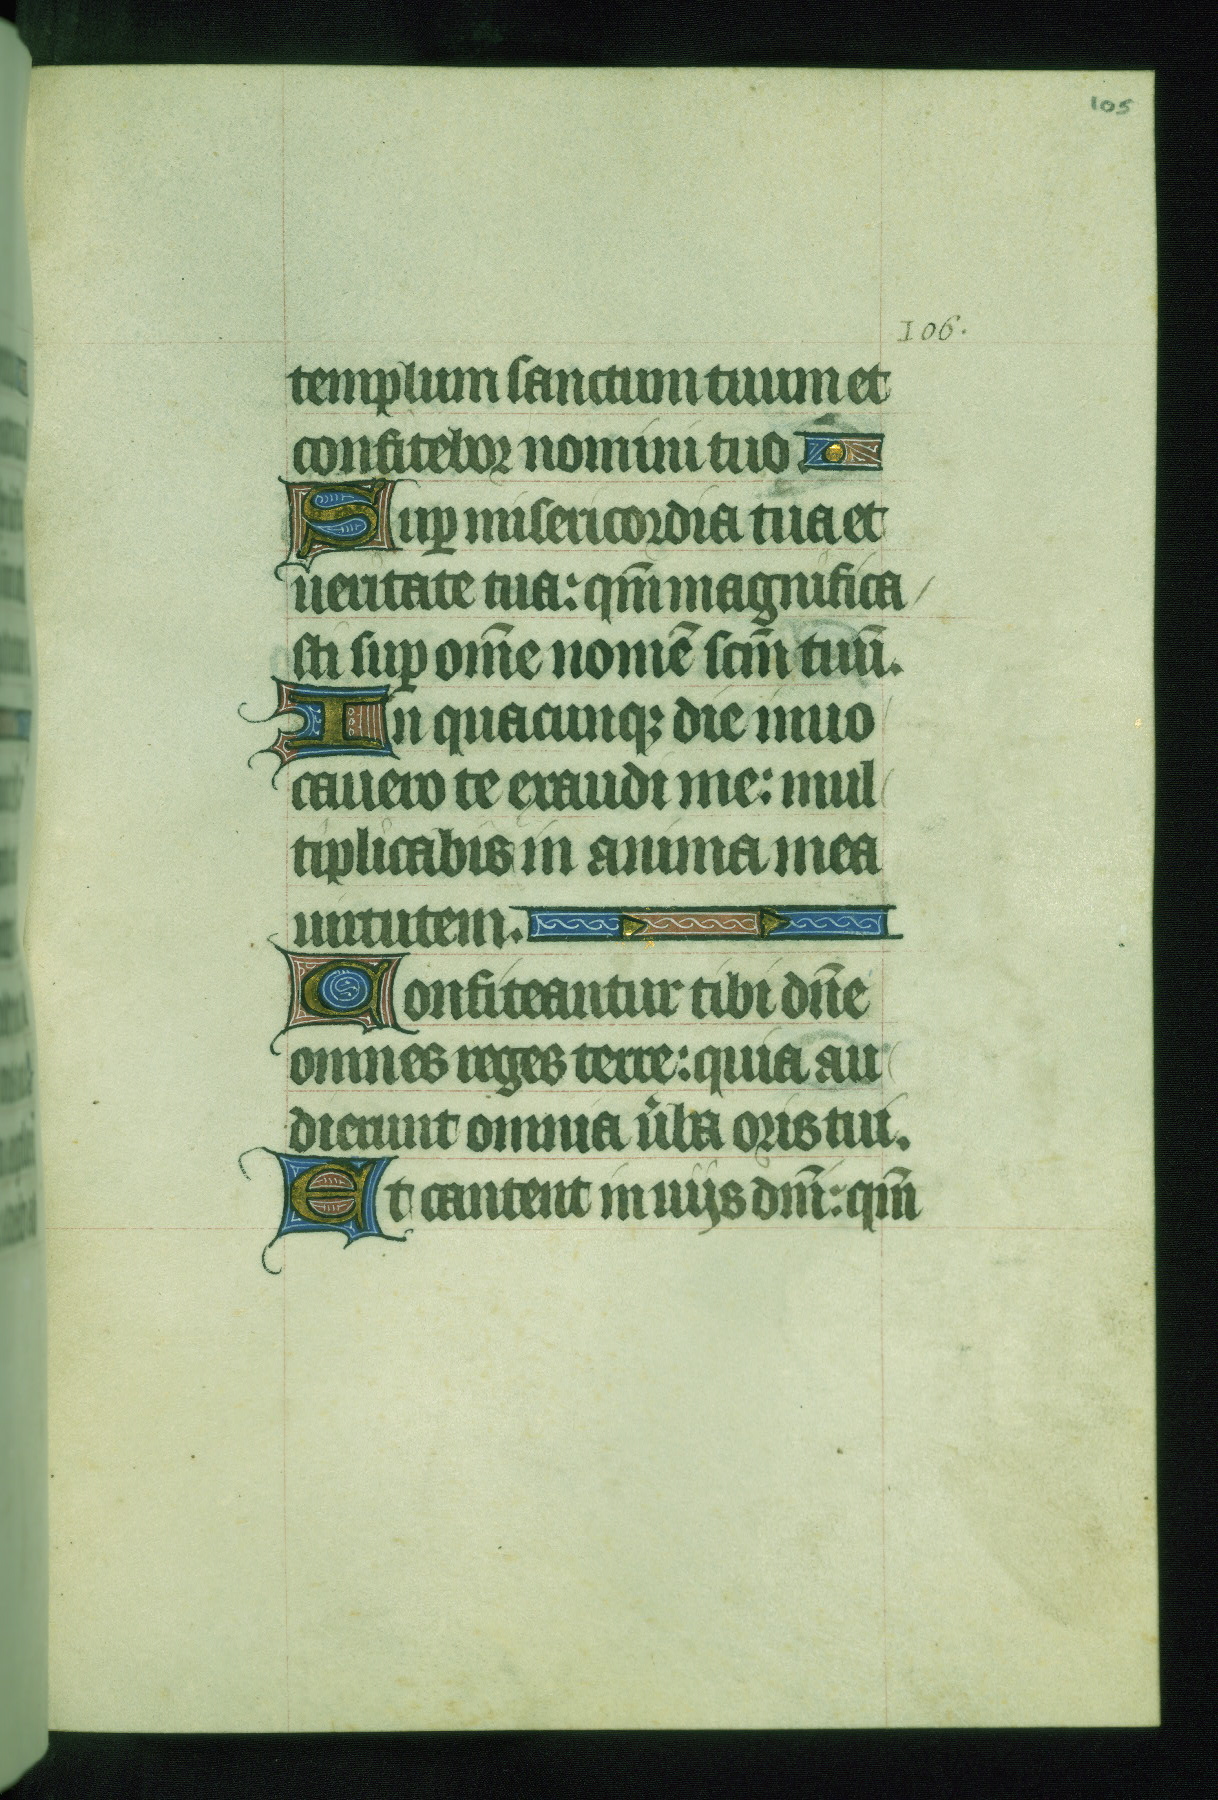 105
106.
templum sanctum tuum et
confitebor nomini tuo.
Sup̱ misericordia tua et
ueritate tua: qm̄ magnifica
sti sup̱ om̄e nomē scm̄ tuū.
In quacunqꝫ die inuo
cauero te exaudi me: mul
tiplicabis in anima mea
uirtutem.
Confiteantur tibi dn̄e
omnes reges terre: quia au
dierunt omnia ūba oris tui.
Et cantent in uijs dm̄: qm̄